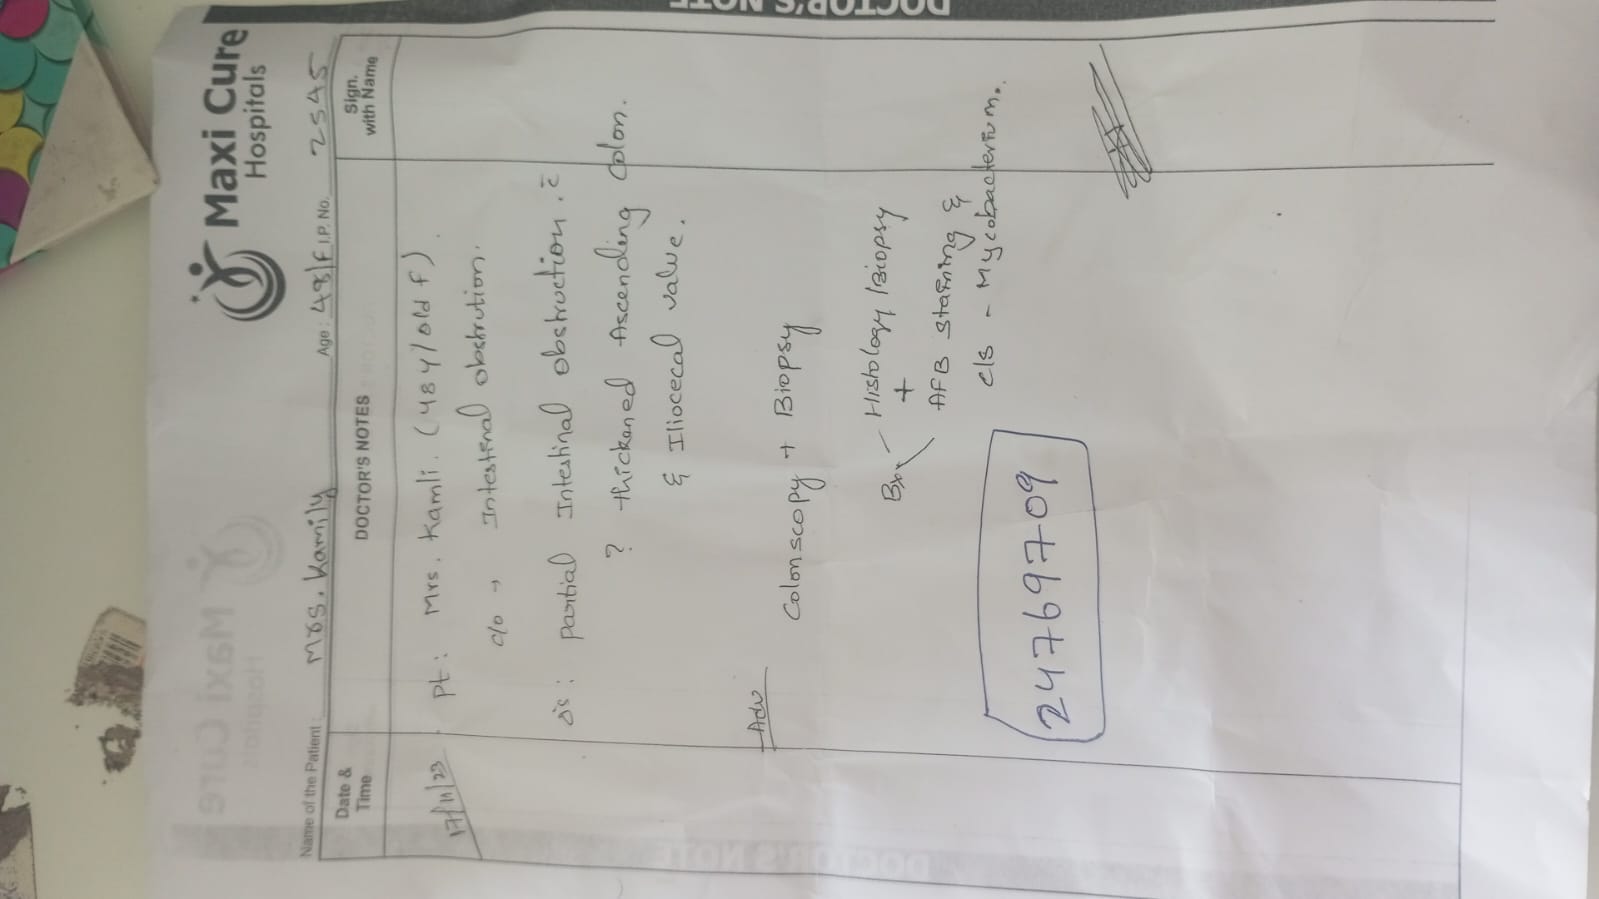 DOCTOR'S NOTE
Maxi Cure
Hospitals
Name of the Patient: Mrs. Kamily Age: 48/F I.P. No. 2545
Date & Time DOCTOR'S NOTES Sign. with Name
17/11/23 Pt: Mrs. Kamli. (48 y/old f).
c/o → Intestinal obstrution.
Δs: partial Intestinal obstruction. c̄
? thickened Ascending Colon.
& Iliocecal value.
Adv
Colonscopy + Biopsy
Bxx - Histology/Biopsy
+
AFB staining &
c/s - Mycobacterium..
24769709